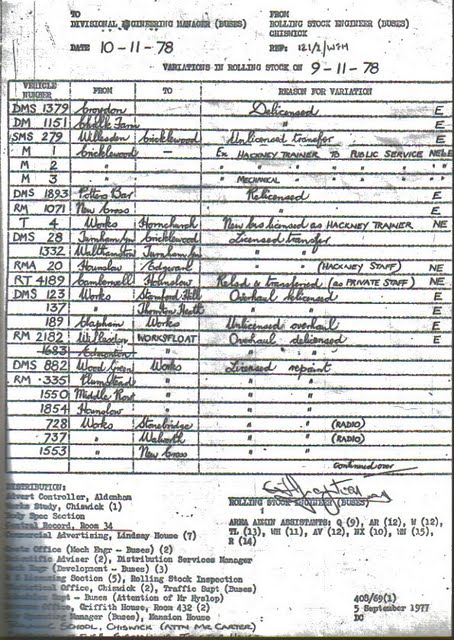 TO FROM
DIVISIONAL ENGINEERING MANAGER (BUSES) ROLLING STOCK ENGINEER (BUSES)
CHISWICK
DATE 10-11-78 REF: 121/2/WFH
VARIATIONS IN ROLLING STOCK ON 9-11-78
VEHICLE NUMBER FROM TO REASON FOR VARIATION
DMS 1379 Croydon Delicensed E
DM 1151 Chalk Farm " E
SMS 279 Willesden Cricklewood Unlicensed transfer E
M 1 Cricklewood — Ex HACKNEY TRAINER TO PUBLIC SERVICE NE&E
M 2 " " " " " " "
M 3 " " MECHANICAL " " " "
DMS 1893 Potters Bar Relicensed E
RM 1071 New Cross " E
T 4 Works Hornchurch New bus licensed as HACKNEY TRAINER NE
DMS 28 Turnham Gn Cricklewood Licensed transfer
1332 Walthamstow Turnham Gn " "
RMA 20 Hounslow Edgware " " (HACKNEY STAFF) NE
RT 4189 Camberwell Hounslow Relcd & transferred (as PRIVATE STAFF) NE
DMS 123 Works Stamford Hill Overhaul licensed E
137 " Thornton Heath " " E
189 Clapham Works Unlicensed overhaul E
RM 2182 Willesden WORKSFLOAT Overhaul delicensed E
1683 Edmonton " " "
DMS 882 Wood Green Works Licensed repaint
RM 335 Plumstead " " "
1550 Middle Row " " "
1854 Hounslow " " "
728 Works Stonebridge " " (RADIO)
737 " Walworth " " (RADIO)
1553 " New Cross " "
continued over
DISTRIBUTION:
Advert Controller, Aldenham ROLLING STOCK ENGINEER (BUSES)
Works Study, Chiswick (1)
Body Spec Section
Central Record, Room 34
Commercial Advertising, Lindsay House (7)
AREA ADMIN ASSISTANTS: Q (9), AR (12), W (12),
TL (13), WH (11), AV (12), NX (10), WN (15),
R (14)
Office (Mech Engr - Buses) (2)
Adviser (2), Distribution Services Manager
Engr (Development - Buses) (3)
Licensing Section (5), Rolling Stock Inspection
Office, Chiswick (2), Traffic Supt (Buses)
Supt - Buses (Attention of Mr Hyslop) 408/69(1)
Office, Griffith House, Room 432 (2) 5 September 1977
Operating Manager (Buses), Mansion House DC
SCHOOL, CHISWICK (ATTN MR CARTER)